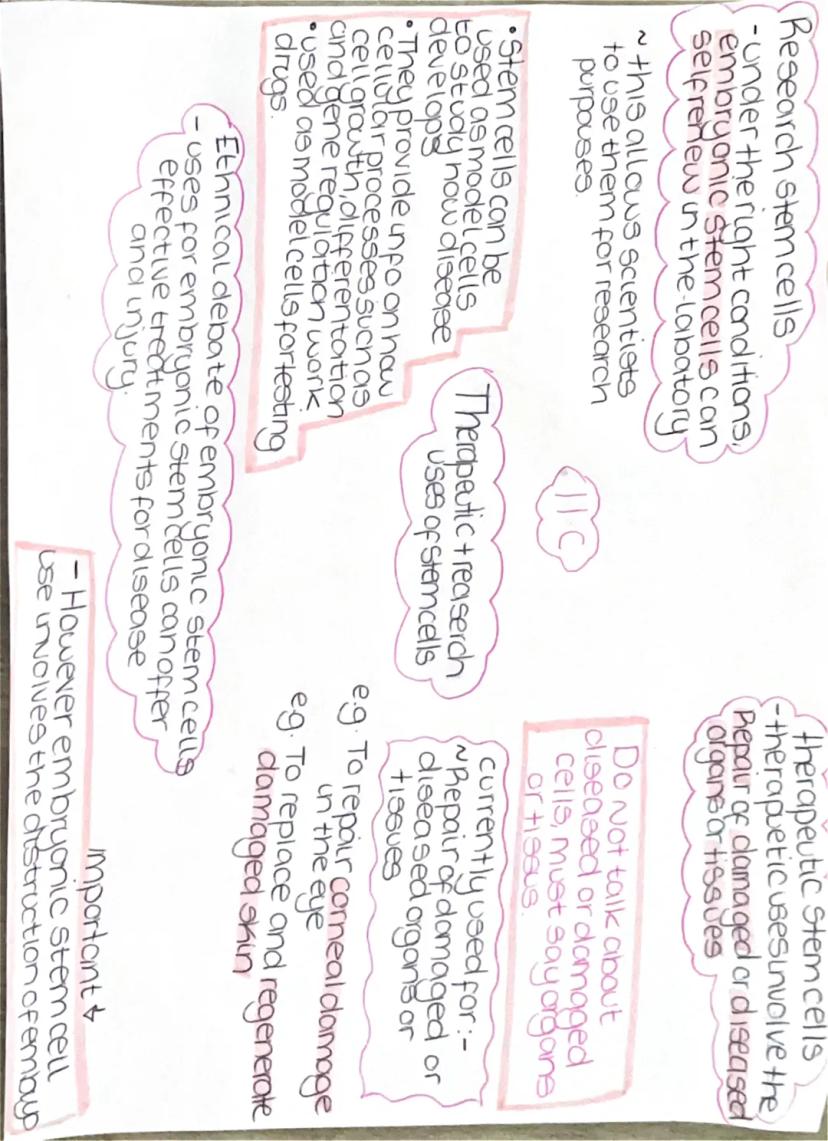 Research stem cells
- under the right conditions,
embryonic stem cells can
self renew in the labatory
~ this allows scientists
to use them for research
purpouses.
• Stem cells can be
used as model cells
to study how disease
develops
• They provide info on how
cellular processes such as
cell growth, differentation
and gene regulation work.
• used as model cells for testing
drugs.
Ethnical debate of embryonic stem cells
- uses for embryonic stem cells can offer
effective treatments for disease
and injury.
11c
Therapeutic + reaserch
uses of stem cells
therapeutic stem cells
- therapuetic uses involve the
Repair of damaged or diseased
organs or tissues
Do Not talk about
diseased or damaged
cells, must say organs
or tissus.
currently used for :-
~ Repair of damaged or
diseased organs or
tissues
e.g. To repair corneal damage
in the eye
e.g. To replace and regenerate
damaged skin
important
- However embryonic stem cell
use involves the distruction of embayo